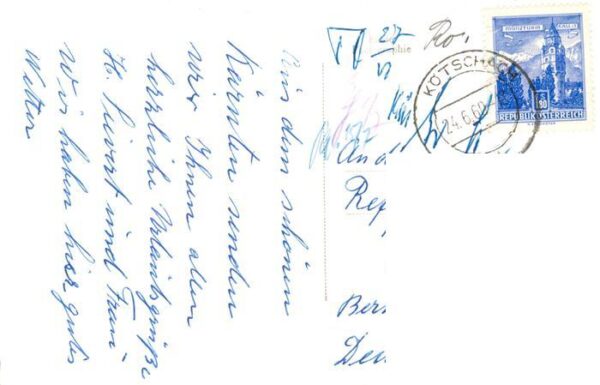 Aus dem schönen
Kärnten senden
wir Ihnen allen
herzliche Urlaubsgrüße
H. Sievert und Frau.
Wir haben hier gutes
Wetter
27
VI
KÖTSCHACH
24.6.60
MÜNZTURM HALL I.T.
REPUBLIK ÖSTERREICH
An d
Rep
Ber
Deu